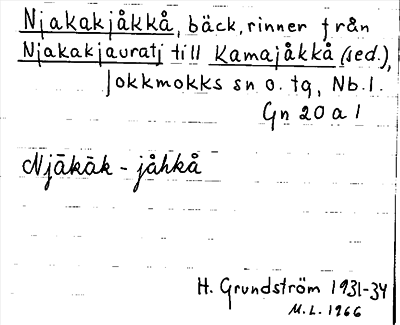 Njakakjåkkå, bäck, rinner från
Njakakjauratj till Kamajåkkå (sed.),
Jokkmokks sn o. tg, Nb. l.
Gn 20 a 1
Njākăk - jåhkå
H. Grundström 1931-34
M.L. 1966